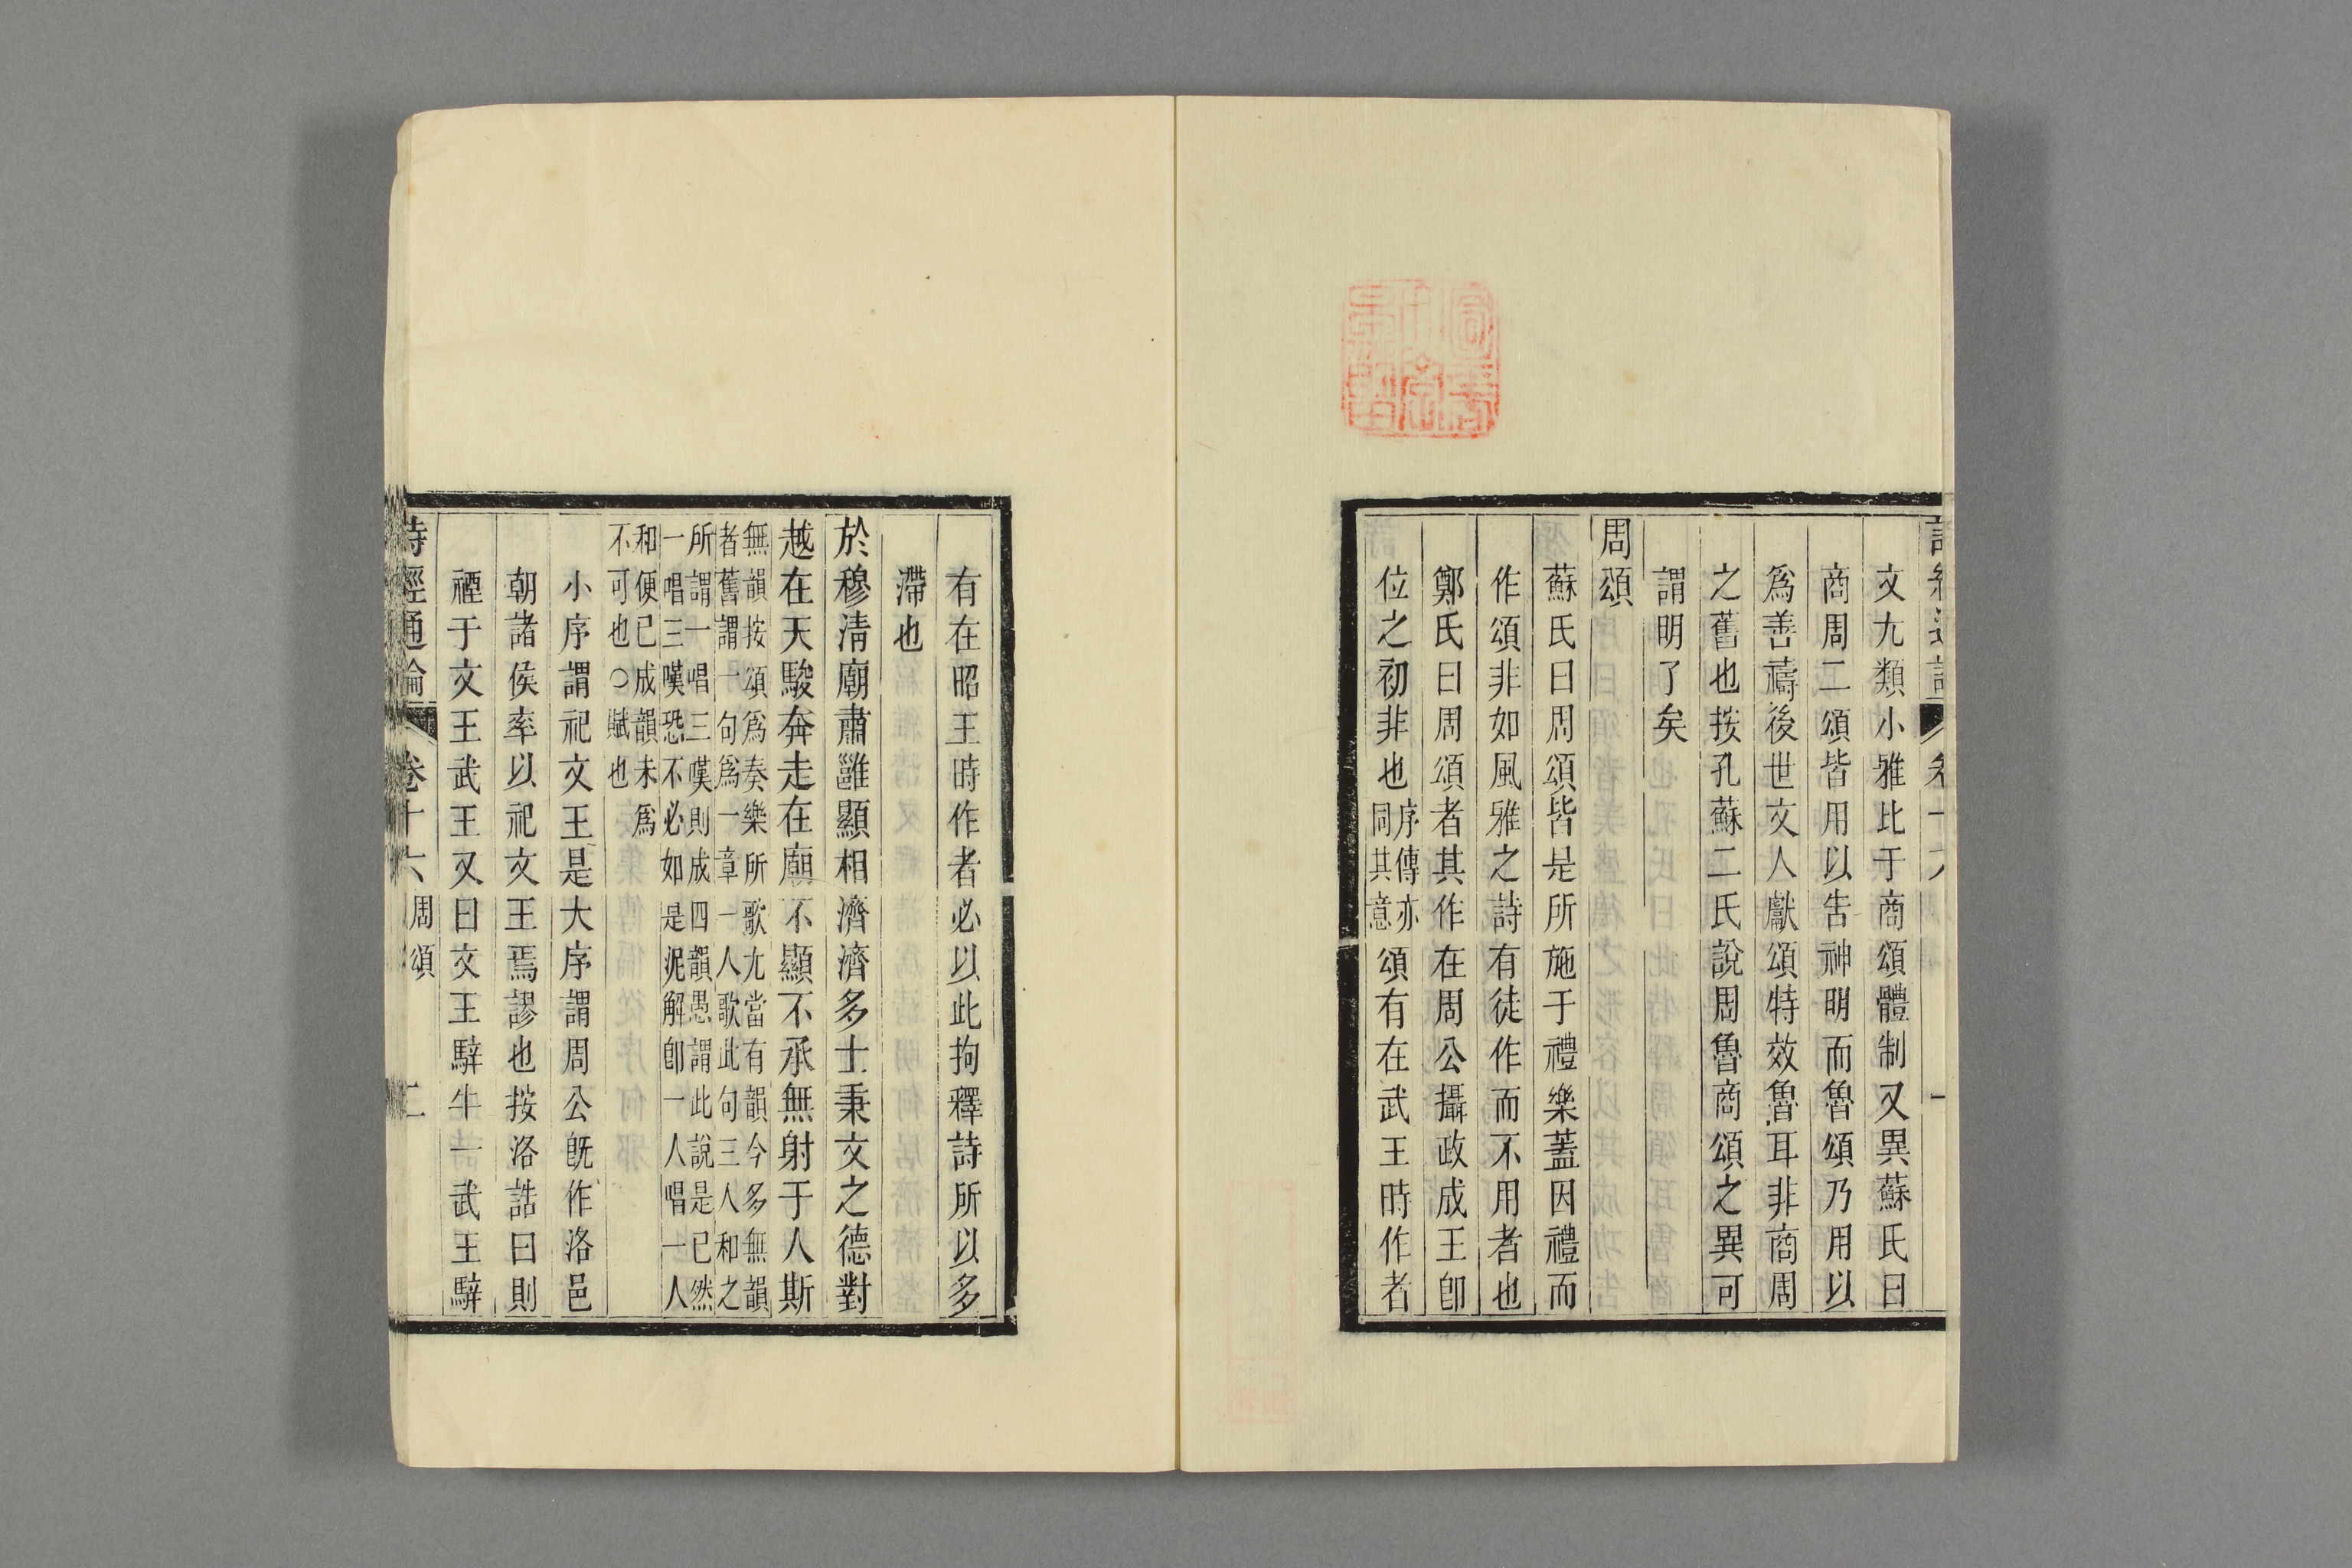 文尤類小雅比于商頌體制又異蘇氏曰
商周二頌皆用以告神明而魯頌乃用以
爲善禱後世文人獻頌特效魯耳非商周
之舊也按孔蘇二氏說周魯商頌之異可
謂明了矣
周頌
蘇氏曰周頌皆是所施于禮樂蓋因禮而
作頌非如風雅之詩有徒作而不用者也
鄭氏曰周頌者其作在周公攝政成王卽
位之初非也序傳亦同其意頌有在武王時作者
有在昭王時作者必以此拘釋詩所以多
滯也
於穆清廟肅雝顯相濟濟多士秉文之德對
越在天駿奔走在廟不顯不承無射于人斯
無韻按頌爲奏樂所歌尤當有韻今多無韻
者舊謂一句爲一章一人歌此句三人和之
所謂一唱三嘆則成四韻愚謂此說是已然
一唱三嘆恐不必如是泥解卽一人唱一人
和便已成韻未爲
不可也○賦也
小序謂祀文王是大序謂周公旣作洛邑
朝諸侯率以祀文王焉謬也按洛誥曰則
禋于文王武王又曰文王騂牛一武王騂
詩經通論 卷十六 周頌 二